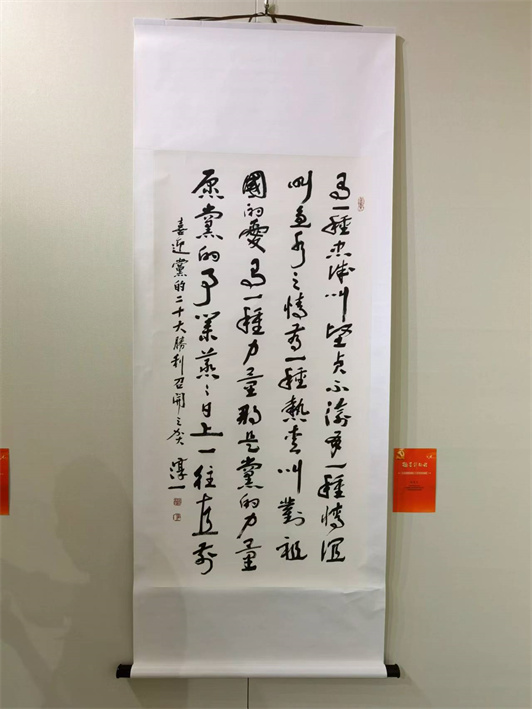 有一種忠诚叫堅贞不渝有一種情谊
叫鱼水之情有一種熱爱叫對祖
國的愛有一種力量那是黨的力量
愿黨的事業蒸々日上一往直前
喜迎黨的二十大勝利召開之
淳一